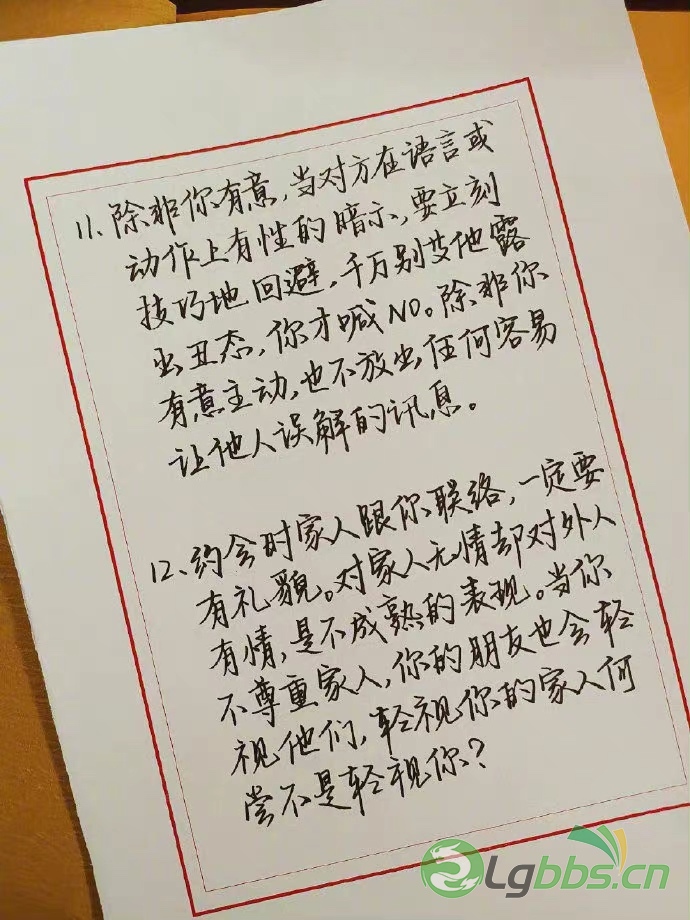 11、除非你有意,当对方在语言或
动作上有性的暗示,要立刻
技巧地回避,千万别等他露
出丑态,你才喊NO。除非你
有意主动,也不放出任何容易
让他人误解的讯息。
12、约会时家人跟你联络,一定要
有礼貌。对家人无情却对外人
有情,是不成熟的表现。当你
不尊重家人,你的朋友也会轻
视他们,轻视你的家人何
尝不是轻视你?
Lgbbs.cn